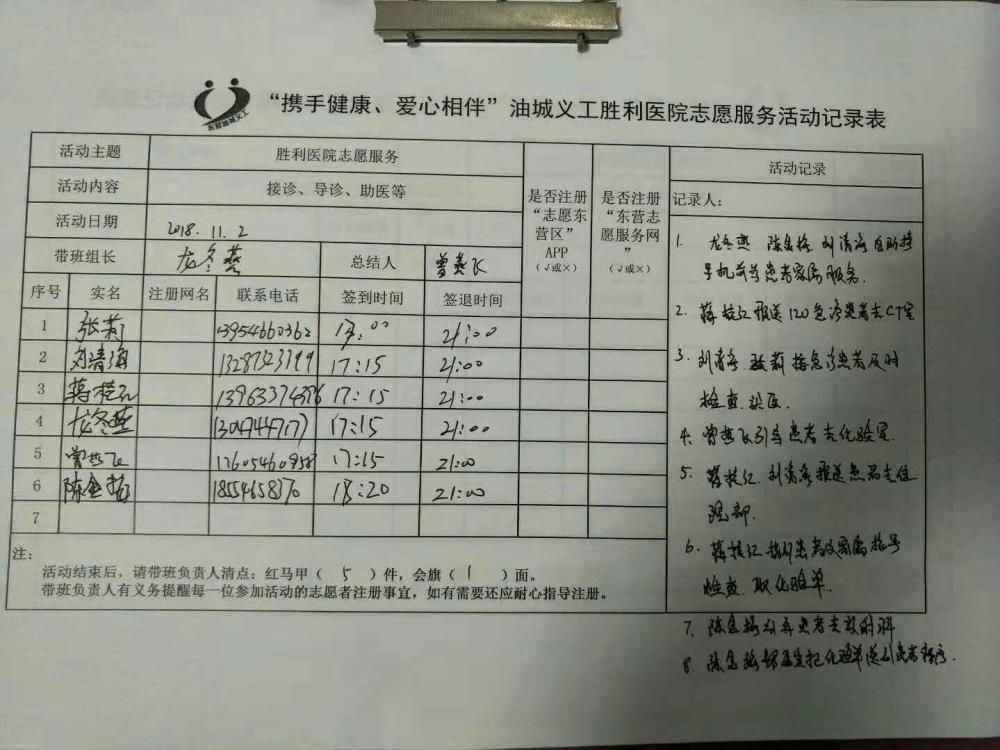 东营油城义工
“携手健康、爱心相伴”油城义工胜利医院志愿服务活动记录表
活动主题 胜利医院志愿服务
活动内容 接诊、导诊、助医等
活动日期 2018.11.2
带班组长 龙冬燕 总结人 曾燕飞
是否注册“志愿东营区”APP（√或×）
是否注册“东营志愿服务网”（√或×）
序号 实名 注册网名 联系电话 签到时间 签退时间
1 张莉 13954660362 21:00
2 刘清海 17:15 21:00
3 蒋桂红 17:15 21:00
4 龙冬燕 17:15 21:00
5 曾燕飞 17:15 21:00
6 陈金梅 21:00
7
注：
活动结束后，请带班负责人清点：红马甲（5）件，会旗（1）面。
带班负责人有义务提醒每一位参加活动的志愿者注册事宜，如有需要还应耐心指导注册。
活动记录
记录人：
1. 龙冬燕 陈金梅 刘清海自助挂
号机前等患者家属服务.
2. 蒋桂红推送120急诊患者去CT室
3. 刘清海 张莉接急诊患者及时
检查
4. 曾燕飞引导患者去化验室.
5. 蒋桂红.刘清海推送患者去住
院部.
6. 蒋桂红指引患者及家属挂号
检查.取化验单.
7. 陈金梅引导患者去放射科
8. 陈金梅